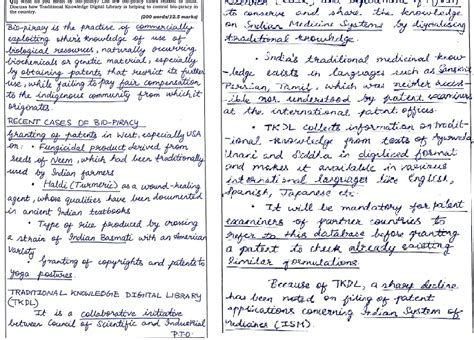 What do you mean by bio-piracy? List the bio-piracy cases related to India.
Discuss how Traditional Knowledge Digital Library is helping to control bio-piracy in
the country.
(200 words/12.5 marks)
Bio-piracy is the practise of commercially
exploiting other's knowledge of use of
biological resources, naturally occuring
biochemicals or genetic material, especially
by obtaining patents that restrict its further
use, while failing to pay fair compensation
to the indigenous community from which it
originates.
RECENT CASES OF BIO-PIRACY
Granting of patents in West, especially USA
on:
• Fungicidal product derived from
seeds of Neem, which had been traditionally
used by Indian farmers
• Haldi (Turmeric) as a wound-healing
agent, whose qualities have been documented
in ancient Indian textbooks
• Type of rice produced by crossing
a strain of Indian Basmati with an American
Variety
• Granting of copyrights and patents to
Yoga postures.
TRADITIONAL KNOWLEDGE DIGITAL LIBRARY
(TKDL)
It is a collaborative initiative
between Council of Scientific and Industrial
P.T.O.
to conserve and share the knowledge
on Indian Medicine Systems by digitalising
traditional knowledge.
• India's traditional medicinal know-
ledge exists in languages such as Sanskrit,
Persian, Tamil, which was neither access-
ible nor understood by patent examiners
at the international patent offices.
• TKDL collects information on tradit-
ional knowledge from texts of Ayurveda,
Unani and Siddha in digitized format
and makes it available in various
international languages like English,
Spanish, Japanese etc.
• It will be mandatory for patent
examiners of partner countries to
refer to this database before granting
a patent to check already existing
similar formulations.
Because of TKDL, a sharp decline
has been noted on filing of patent
applications concerning Indian System of
Medicines (ISM).